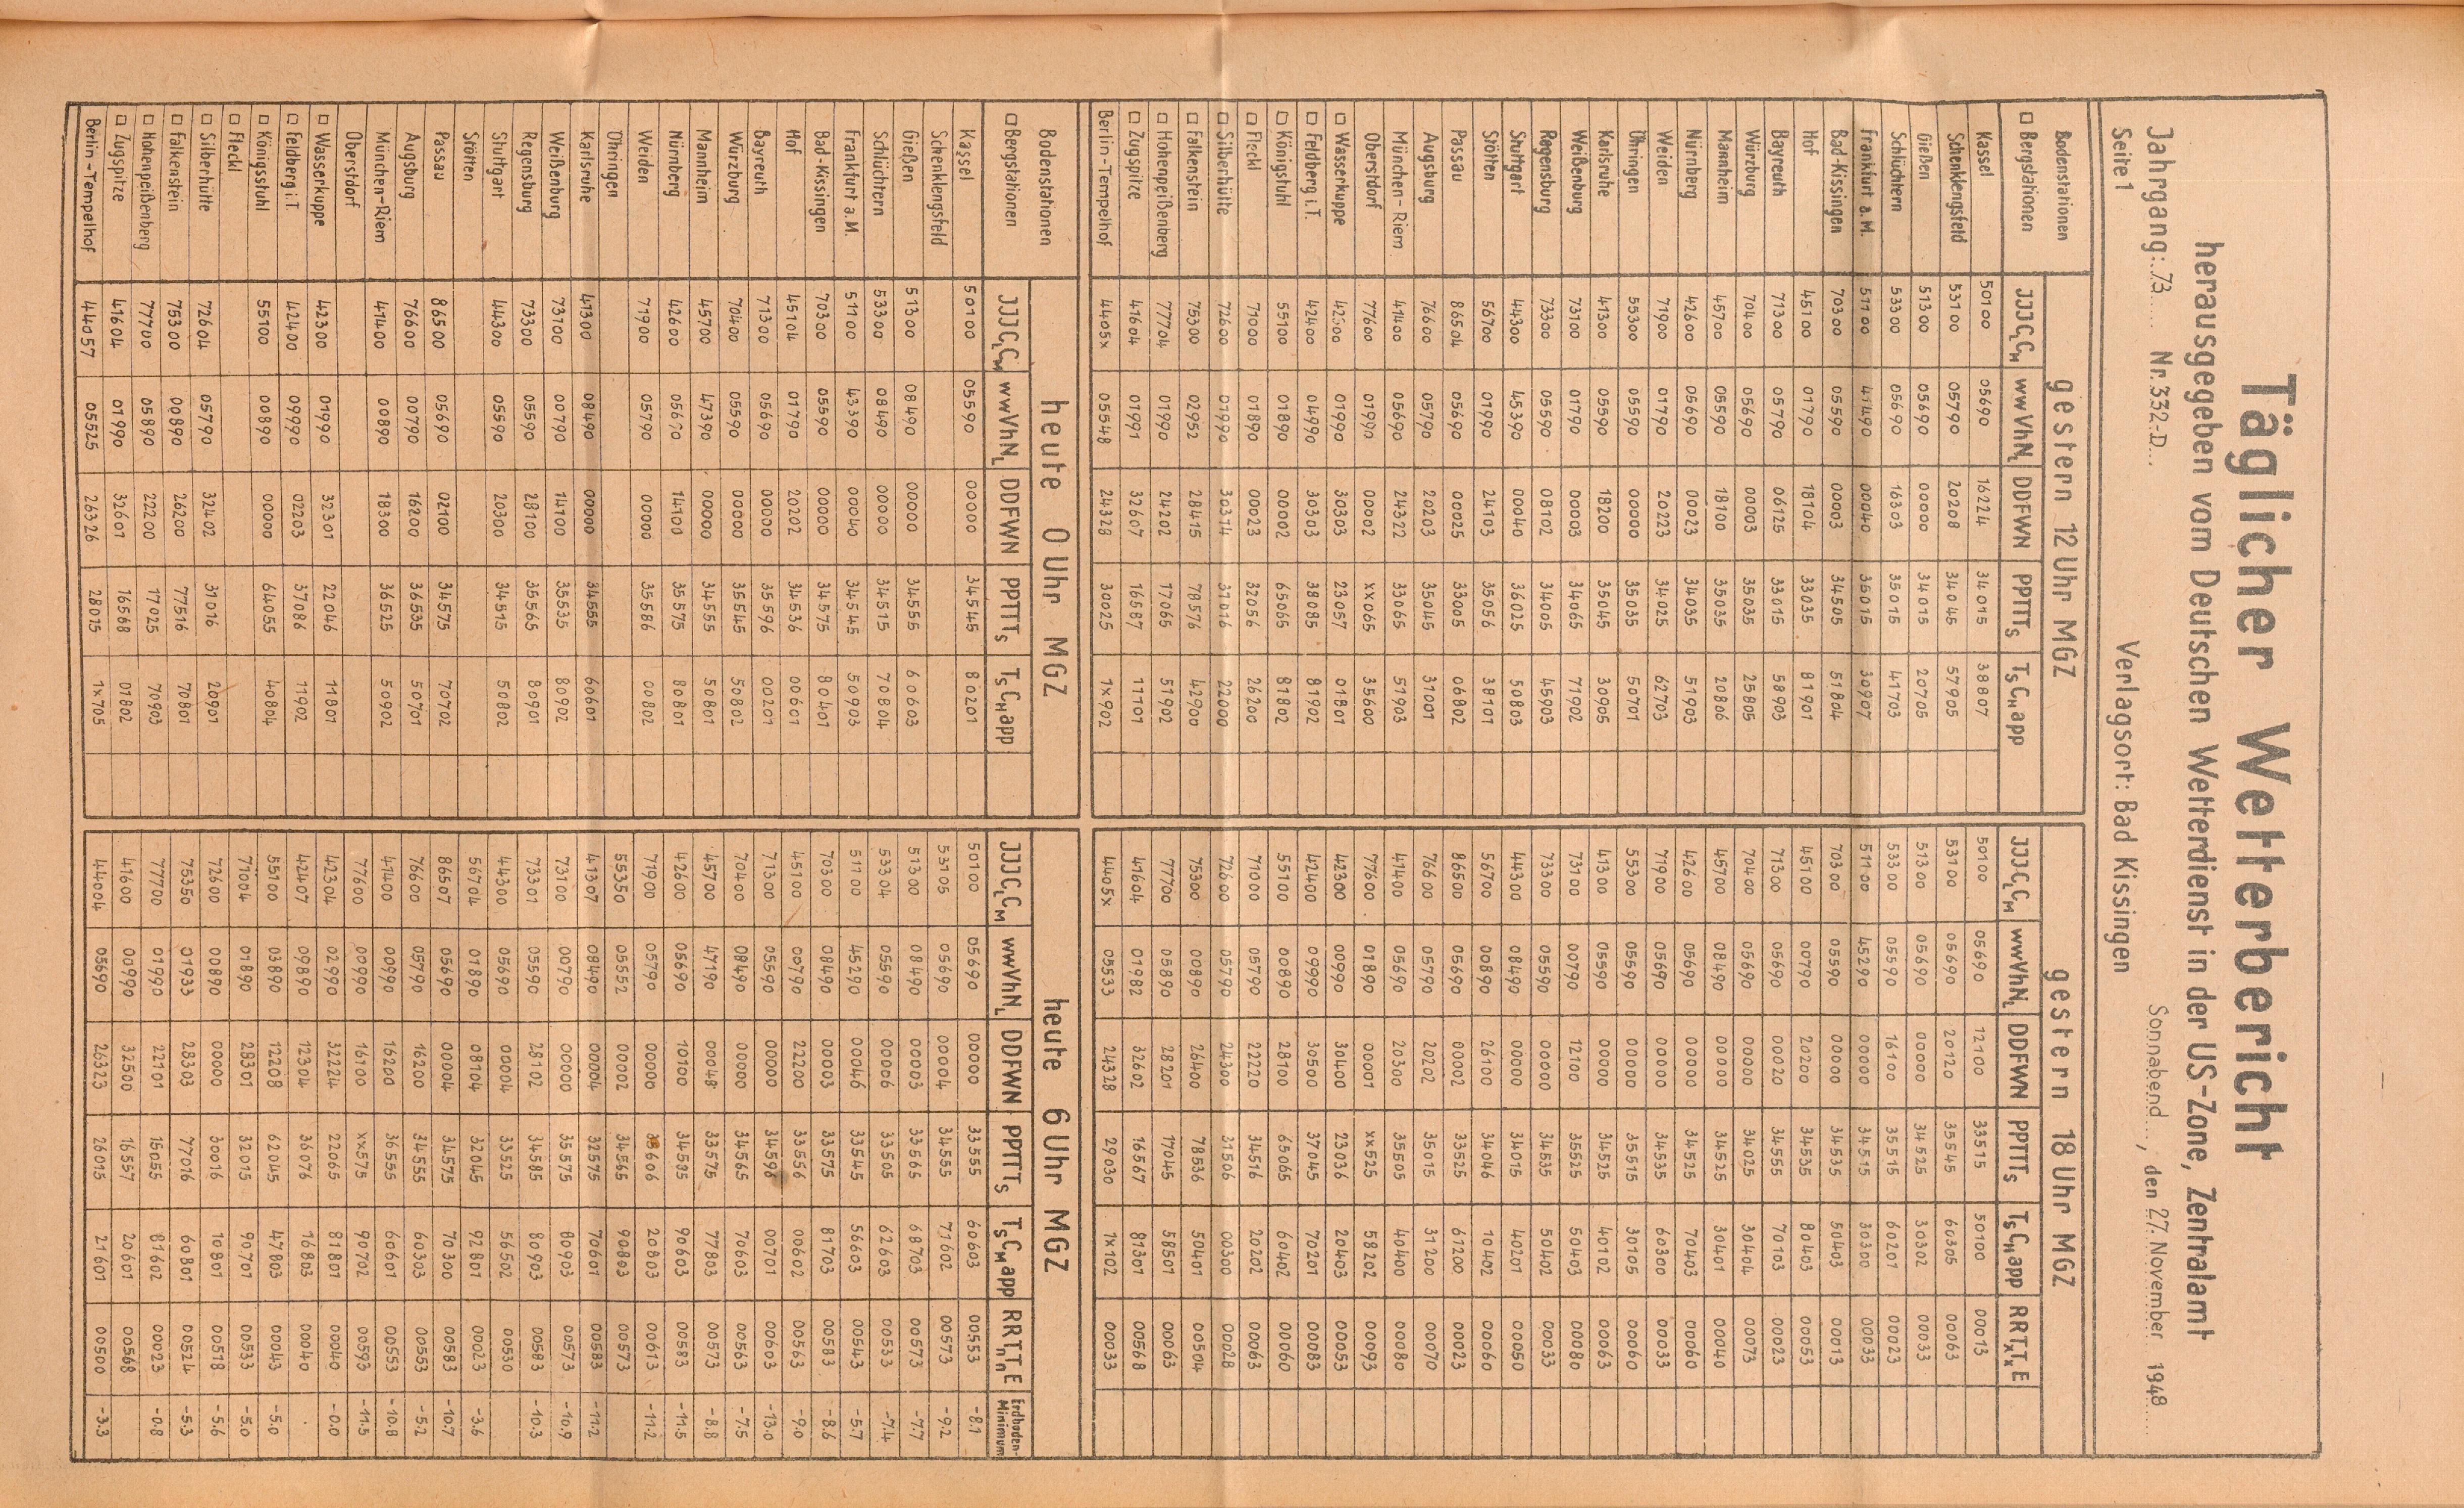 Täglicher Wetterbericht
herausgegeben vom Deutschen Wetterdienst in der US-Zone, Zentralamt
Jahrgang: 73 Nr. 332-D Sonnabend, den 27. November 1948
Seite 1 Verlagsort: Bad Kissingen
Bodenstationen gestern 12 Uhr MGZ gestern 18 Uhr MGZ
□ Bergstationen JJJCLCM wwVhNL DDFWN PPTTTs TsCHapp JJJCLCM wwVhNL DDFWN PPTTTs TsCHapp RRTxTxE
Kassel 50100 05690 16224 34015 38807 50100 05690 12100 33515 50100 00013
Schenklengsfeld 53100 05790 20208 34045 57905 53100 05690 20120 35545 60305 00063
Gießen 51300 05690 00000 34015 20705 51300 05690 00000 34525 30302 00033
Schlüchtern 53300 05690 16303 35015 41703 53300 05590 16100 35515 60201 00023
Frankfurt a.M. 51100 41490 00040 35015 30907 51100 45290 00000 34515 30300 00033
Bad-Kissingen 70300 05590 00003 34505 51804 70300 05590 00000 34535 50403 00013
Hof 45100 01790 18104 33035 81901 45100 00790 20200 34535 80403 00053
Bayreuth 71300 05790 06125 33015 58903 71300 05690 00020 34555 70103 00023
Würzburg 70400 05690 00003 35035 25805 70400 05690 00000 34025 30404 00073
Mannheim 45700 05590 18100 35035 20806 45700 08490 00000 34525 30401 00040
Nürnberg 42600 05690 00023 34035 51903 42600 05690 00000 34525 70403 00060
Weiden 71900 01790 20223 34025 62703 71900 05690 00000 34535 60300 00033
Öhringen 55300 05590 00000 35035 50701 55300 05590 00000 35515 30105 00060
Karlsruhe 41300 05590 18200 35045 30905 41300 05590 00000 34525 40102 00063
Weißenburg 73100 01790 00003 34065 71902 73100 00790 12100 35525 50403 00080
Regensburg 73300 05590 08102 34005 45903 73300 05590 00000 34535 50402 00033
Stuttgart 44300 45390 00040 36025 50803 44300 08490 00000 34015 40201 00050
Stötten 56700 01990 24103 35056 38101 56700 00890 26100 34046 10402 00060
Passau 86504 05690 00025 33005 06802 86500 05690 00002 33525 61200 00023
Augsburg 76600 05790 20203 35045 31001 76600 05790 20202 35015 31200 00070
München-Riem 41400 05690 24322 33065 51903 41400 05690 20300 35505 40400 00080
Oberstdorf 77600 01990 00002 xx065 35600 77600 01890 00001 xx525 58202 00093
□ Wasserkuppe 42300 01990 30303 23057 01801 42300 00990 30400 23036 20403 00053
□ Feldberg i.T. 42400 04990 30303 38085 81902 42400 09990 30500 37045 70201 00083
□ Königstuhl 55100 01890 00002 65065 81802 55100 00890 28100 65065 60402 00060
□ Fleckl 71000 01890 00023 32056 26200 71000 05790 22220 34516 20202 00063
□ Silberhütte 72600 01990 30314 31016 22000 72600 05790 24300 31506 00300 00028
□ Falkenstein 75300 02952 28415 78576 42900 75300 00890 26400 78536 50401 00504
□ Hohenpeißenberg 77704 01990 24202 17065 51902 77700 05890 28201 17045 58501 00063
□ Zugspitze 41604 01991 32607 16587 11101 41604 01982 32602 16567 81301 00568
Berlin-Tempelhof 4405x 05548 24328 30025 1x902 4405x 05533 24328 29030 1x102 00033
Bodenstationen heute 0 Uhr MGZ heute 6 Uhr MGZ
□ Bergstationen JJJCLCM wwVhNL DDFWN PPTTTs TsCHapp JJJCLCM wwVhNL DDFWN PPTTTs TsCHapp RRTnTnE Erdboden-Minimum
Kassel 50100 05590 00000 34545 80201 50100 05690 00000 33555 60603 00553 -8.1
Schenklengsfeld 53105 05690 00004 34555 71602 00573 -9.2
Gießen 51300 08490 00000 34555 60603 51300 08490 00003 33565 68703 00573 -7.7
Schlüchtern 53300 08490 00000 34515 70804 53304 05590 00006 33505 62603 00533 -7.4
Frankfurt a.M. 51100 43390 00040 34545 50903 51100 45290 00046 33545 56603 00543 -5.7
Bad-Kissingen 70300 05590 00000 34575 80401 70300 08490 00003 33575 81703 00583 -8.6
Hof 45104 01790 20202 34536 00601 45100 00790 22200 33556 00602 00563 -9.0
Bayreuth 71300 05690 00000 35596 00201 71300 05590 00000 34596 00701 00603 -13.0
Würzburg 70400 05590 00000 35545 50802 70400 08490 00000 34565 70603 00563 -7.5
Mannheim 45700 47390 00000 34555 50801 45700 47190 00048 33575 77803 00573 -8.8
Nürnberg 42600 05690 14100 35575 80801 42600 05690 10100 34585 90603 00583 -11.5
Weiden 71900 05790 00000 35586 00802 71900 05790 00000 606 20803 00613 -11.2
Öhringen 55350 05552 00002 34565 90803 00573
Karlsruhe 41300 08490 00000 34555 60601 41307 08490 00004 32575 70601 00583 -11.2
Weißenburg 73100 00790 14100 35535 80902 73100 00790 00000 35575 80903 00573 -10.9
Regensburg 73300 05590 28100 35565 80901 73301 05590 28102 34585 80903 00583 -10.3
Stuttgart 44300 05590 20300 34515 50802 44300 05690 00004 33525 56502 00530
Stötten 56704 01890 08104 32045 92801 00023 -3.6
Passau 86500 05690 02100 34575 70702 86507 05690 00004 34575 70300 00583 -10.7
Augsburg 76600 00790 16200 36535 50701 76600 05790 16200 34555 60303 00553 -5.2
München-Riem 41400 00890 18300 36525 50902 41400 00990 16200 36555 60601 00553 -10.8
Oberstdorf 77600 00990 16100 xx575 90702 00593 -11.5
□ Wasserkuppe 42300 01990 32301 22046 11801 42304 02990 32224 22065 81801 00040 -0.0
□ Feldberg i.T. 42400 09990 02203 37086 11902 42407 09890 12304 36076 16803 00040 .
□ Königsstuhl 55100 00890 00000 64055 40804 55100 03890 12208 62045 47803 00043 -5.0
□ Fleckl 71004 01890 28301 32015 90701 00533 -5.0
□ Silberhütte 72604 05790 32402 31016 20901 72600 00890 00000 30016 10801 00518 -5.6
□ Falkenstein 75300 00890 26200 77516 70801 75350 01933 28303 77016 60801 00524 -5.3
□ Hohenpeißenberg 77700 05890 22200 17025 70903 77700 01990 22101 15055 81602 00023 -0.8
□ Zugspitze 41604 01990 32601 16568 01802 41600 00990 32500 16557 20601 00568
Berlin-Tempelhof 44057 05525 26326 28015 1x705 44004 05690 26323 26015 21601 00500 -3.3